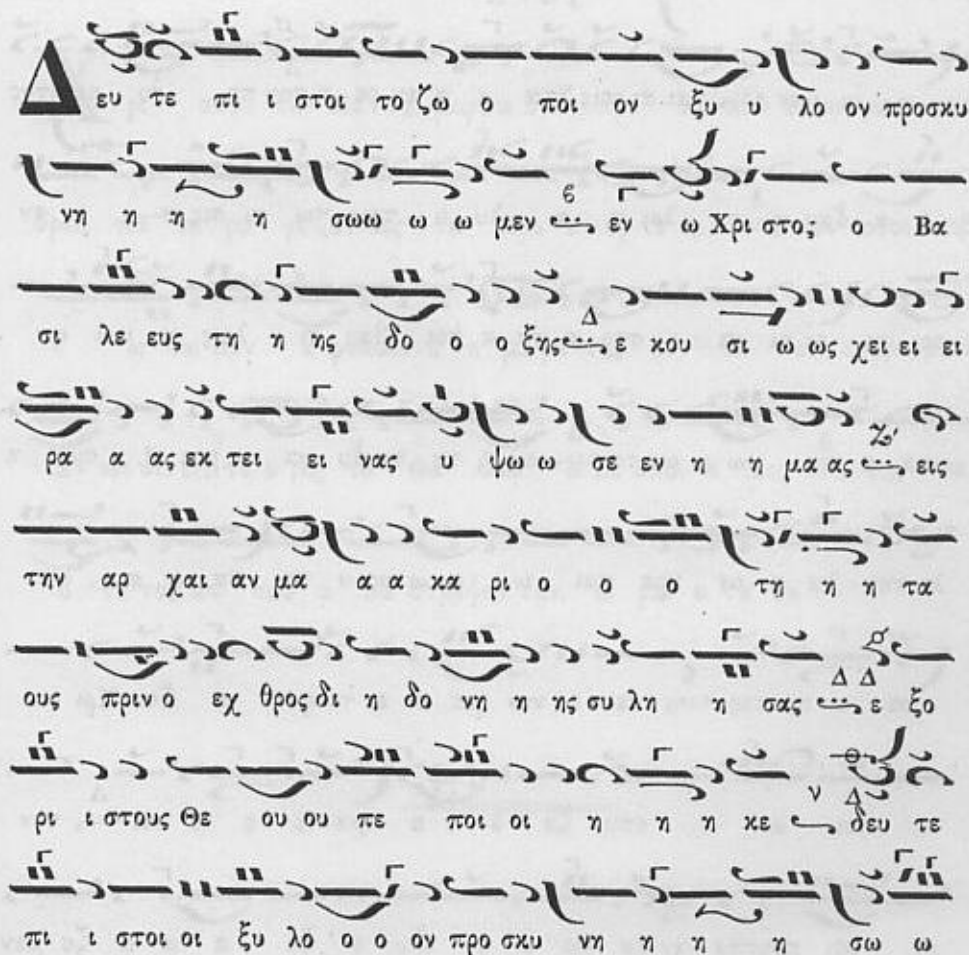 Δ ευ τε πι ι στοι το ζω ο ποι ον ξυ υ λο ον προσκυ
νη η η η σωω ω ω μεν εν ω Χρι στος ο Βα
σι λε ευς τη η ης δο ο ο ξης ε κου σι ω ως χει ει ει
ρα α ας εκ τει ει νας υ ψω ω σε εν η η μα ας εις
την αρ χαι αν μα α α κα ρι ο ο ο τη η η τα
ους πριν ο εχ θρος δι η δο νη η ης συ λη η σας ε ξο
ρι ι στους Θε ου ου πε ποι οι η η η κε δευ τε
πι ι στοι οι ξυ λο ο ο ον προ σκυ νη η η η σω ω